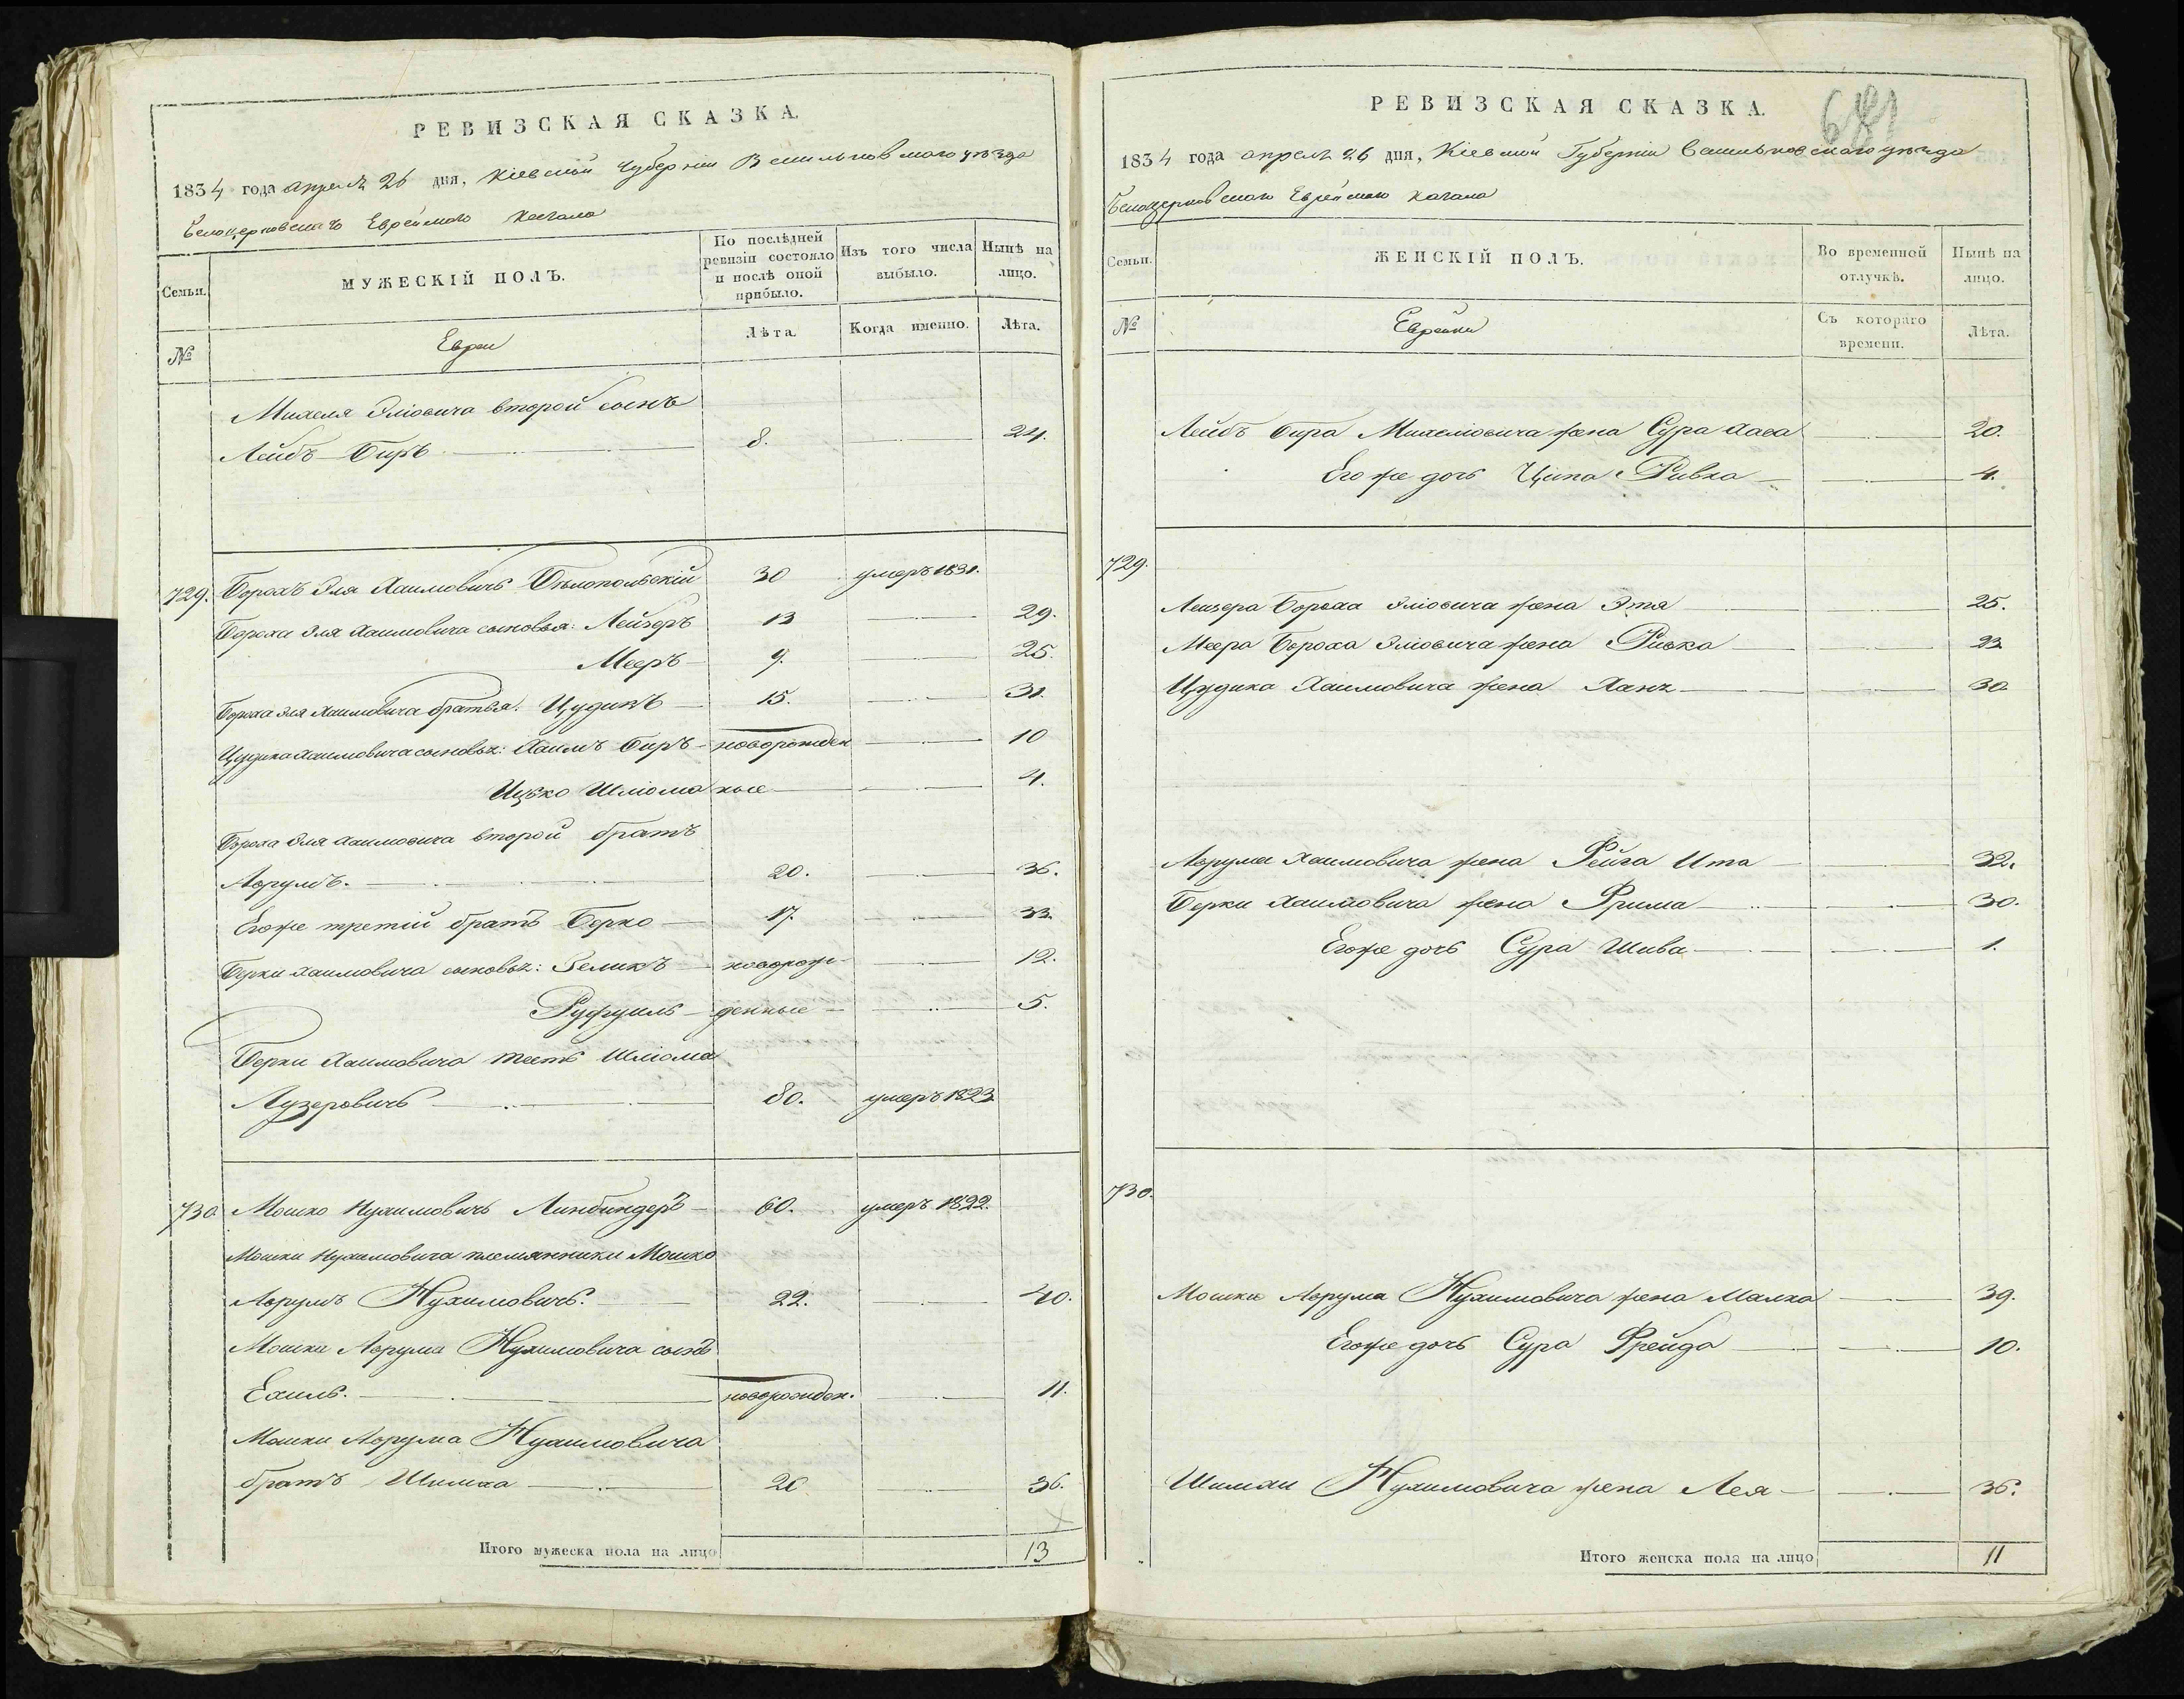 РЕВИЗСКАЯ СКАЗКА.
1834 года апреля 26 дня, Кіевской Губерніи Васильковскаго уѣзда
Белоцерковскаго Еврейскаго Кагала
Семьи.
МУЖЕСКІЙ ПОЛЪ.
По послѣдней ревизіи состояло и послѣ оной прибыло.
Изъ того числа выбыло.
Нынѣ на лицо.
№
Евреи
Лѣта
Когда именно.
Лѣта.
Михеля Эліовича второй сынъ
Лейбъ Биръ 8. 24.
729. Борохъ Эля Хаимовичь Бѣлопольскій 30 умеръ 1831.
Бороха Эля Хаимовича сыновья: Лейзеръ 13 29.
Мееръ 9. 25.
Бороха Эля Хаимовича братья: Цудикъ 15. 31.
Цудика Хаимовича сыновья: Хаимъ Биръ новорожден 10
Ицько Шліома ные 4.
Бороха Эля Хаимовича второй братъ
Аврумъ. 20. 36.
Егоже третій братъ Берко 17. 33.
Берки Хаимовича сыновья: Зеликъ новорож- 12.
Руфуиль денные 5.
Берки Хаимовича тесть Шліома
Лузеровичь 80. умеръ 1823
730. Мошко Нухимовичь Линбиндеръ 60. умеръ 1822.
Мошки Нухимовича племянники Мошко
Аврумъ Нухимовичь. 22. 40.
Мошки Аврума Нухимовича сынъ
Ехиль. новорожден. 11.
Мошки Аврума Нухимовича
братъ Шимха 20 36.
Итого мужеска пола на лицо 13
РЕВИЗСКАЯ СКАЗКА.
1834 года апреля 26 дня, Кіевской Губерніи Васильковскаго уѣзда
Белоцерковскаго Еврейскаго Кагала
Семьи.
ЖЕНСКІЙ ПОЛЪ.
Во временной отлучкѣ.
Нынѣ на лицо.
№
Еврейки
Съ котораго времени.
Лѣта.
Лейбъ Бира Михеліовича жена Сура Хава 20.
Его же дочь Ципа Ривка 4.
729.
Лейзера Бороха Эліовича жена Этя 25.
Меера Бороха Эліовича жена Ривка 23
Цудика Хаимовича жена Ханя 30.
Аврума Хаимовича жена Рейза Ита 32.
Берки Хаимовича жена Фрима 30.
Егоже дочь Сура Шива 1.
730.
Мошки Аврума Нухимовича жена Малка 39.
Егоже дочь Сура Фрейда 10.
Шимхи Нухимовича жена Лея 36.
Итого женска пола на лицо 11